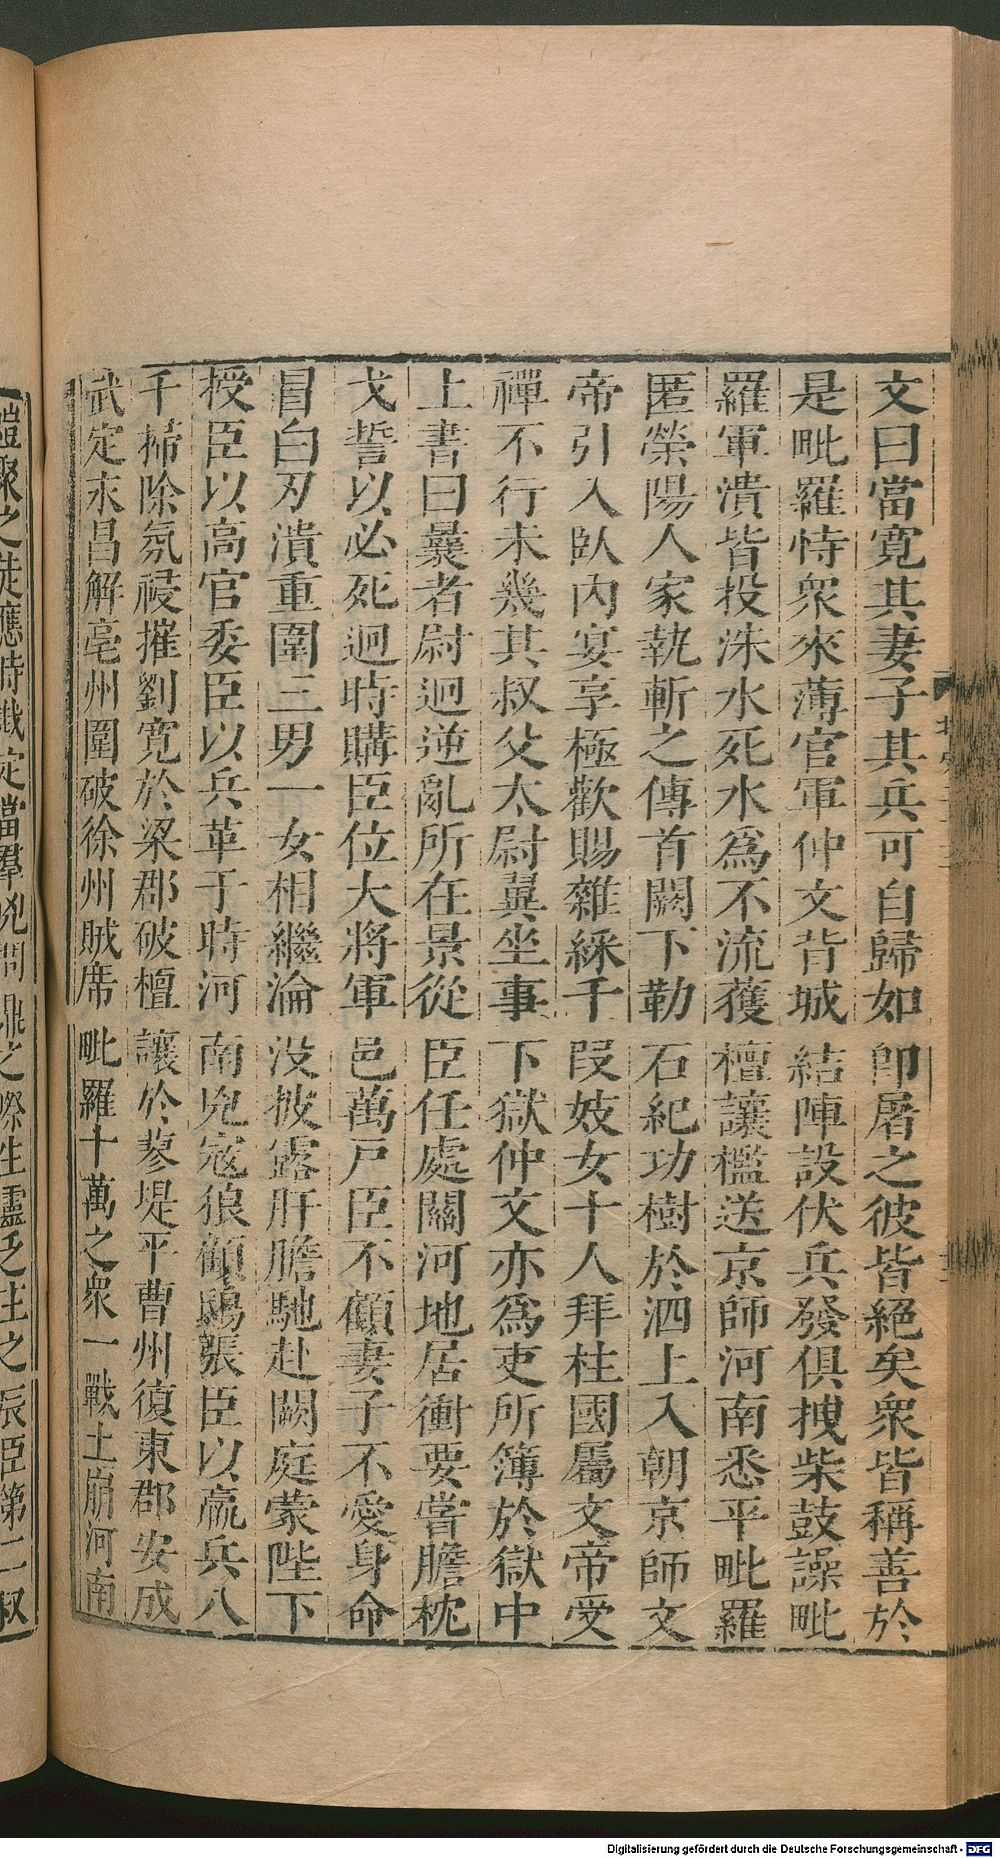 文曰當寛其妻子其兵可自歸如即屠之彼皆絕矣衆皆稱善於
是毗羅恃衆來薄官軍仲文背城結陣設伏兵發俱拽柴鼓譟毗
羅軍潰皆投洙水死水爲不流獲檀讓檻送京師河南悉平毗羅
匿滎陽人家執斬之傳首闕下勒石紀功樹於泗上入朝京師文
帝引入臥内宴享極歡賜雜綵千段妓女十人拜柱國屬文帝受
禪不行未幾其叔父太尉翼坐事下獄仲文亦爲吏所簿於獄中
上書曰曩者尉迥逆亂所在景從臣任處關河地居衝要嘗膽枕
戈誓以必死迥時購臣位大將軍邑萬戸臣不顧妻子不愛身命
冒白刃潰重圍三男一女相繼淪没披露肝膽馳赴闕庭蒙陛下
授臣以高官委臣以兵革于時河南兇寇狼顧鴟張臣以羸兵八
千掃除氛祲摧劉寛於梁郡破檀讓於蓼堤平曹州復東郡安成
武定永昌解亳州圍破徐州賊席毗羅十萬之衆一戰土崩河南
螘聚之徒應時戡定當羣兇問鼎之際生靈乏主之辰臣第二叔
Digitalisierung gefördert durch die Deutsche Forschungsgemeinschaft - DFG